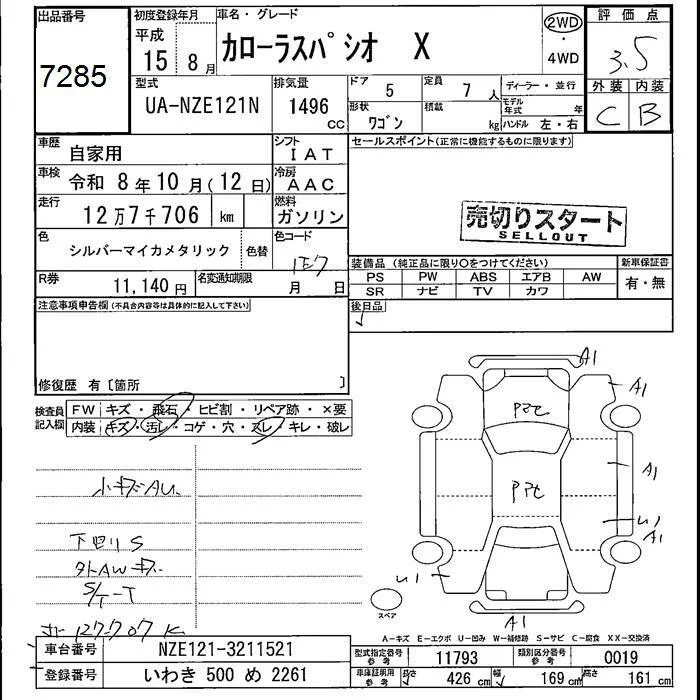 出品番号 初度登録年月 車名・グレード 評価点
7285 平成 15年 8月 カローラスパシオ X 2WD・4WD 3.5
型式 排気量 ドア 5 定員 7人 ディーラー・並行 外装 内装
UA-NZE121N 1496cc 形状 ワゴン 積載 kg モデル年式 年 ハンドル 左・右 C B
車歴 自家用 シフト IAT セールスポイント(正常に機能するものに限ります)
車検 令和 8年10月(12日) 冷房 AAC
走行 12万7千706 km 燃料 ガソリン 売切りスタート
SELLOUT
色 シルバーマイカメタリック 色替 色コード 1E7
R券 11,140円 名変通知期限 月 日
装備品(純正品に限り○をつけてください) 新車保証書
PS PW ABS エアB AW 有・無
SR ナビ TV カワ
注意事項申告欄(不具合内容等は具体的に記入して下さい) 後日品
修復歴 有〔箇所 〕
検査員記入欄 FW キズ・飛石・ヒビ割・リペア跡・×要
内装 キズ・汚レ・コゲ・穴・スレ・キレ・破レ
A1
A1
A1
A1
U1
U1
A1
小キズAU.
下回りS
S/T-T
127707K
スペア
A−キズ E−エクボ U−凹み W−補修跡 S−サビ C−腐食 XX−交換済
車台番号 NZE121-3211521 型式指定番号 参考 11793 類別区分番号 参考 0019
登録番号 いわき 500 め 2261 車庫証明用 参考 長さ 426cm 幅 169cm 高さ 161cm